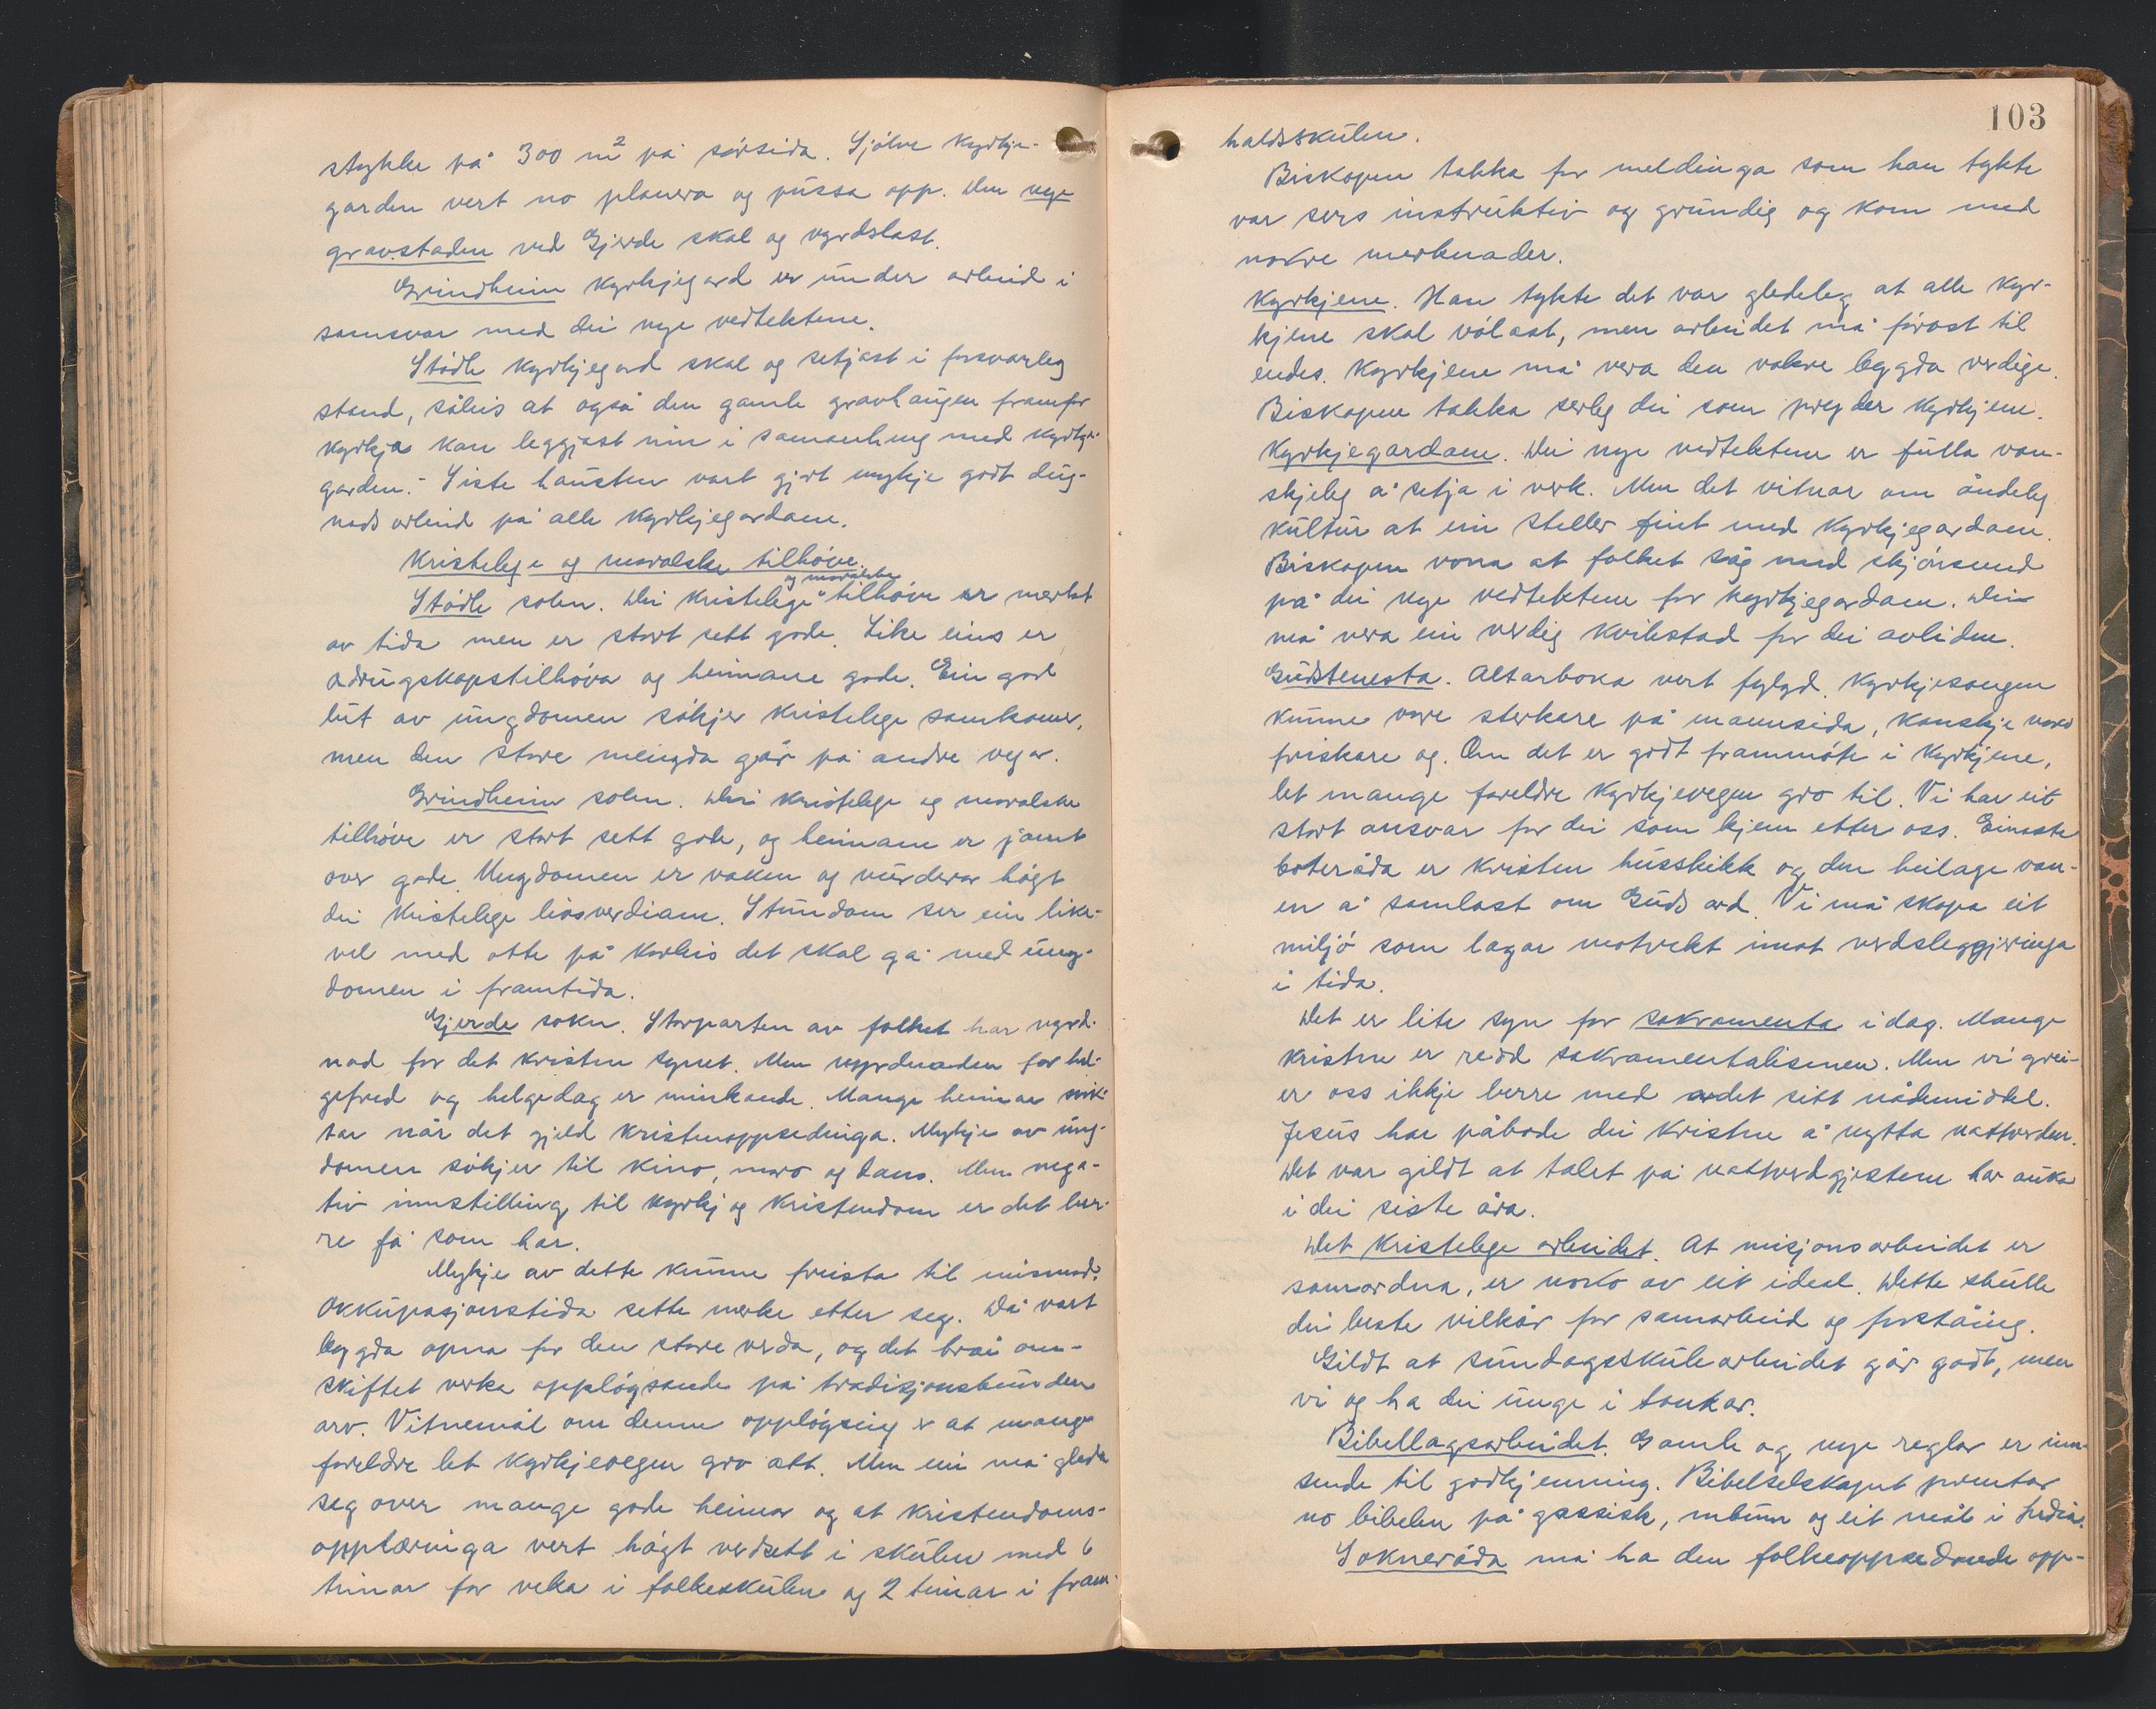 stykke på 300 m² på sørsida. Sjølve kyrkje-
garden vert no planera og pussa opp. Den nye
gravstaden ved Gjerde skal og vyrdslast.
Grindheim kyrkjegard er under arbeid i
samsvar med dei nye vedtektene.
Stødle kyrkjegard skal og setjast i forsvarleg
stand, såleis at også den gamle gravhaugen framfor
kyrkja kan leggjast inn i samanheng med kyrkje-
garden. - Siste hausten vart gjort mykje godt dug-
nadsarbeid på alle kyrkjegardane.
Kristelege og moralske tilhøve.
og moralske
Stødle sokn. Dei kristelege tilhøve er merkt
av tida men er stort sett gode. Like eins er
adrugskapstilhøva og heimane gode. Ein god
lut av ungdomen søkjer kristelege samkomer,
men den store mengda går på andre vegar.
Grindheim sokn. Dei kristelege og moralske
tilhøve er stort sett gode, og heimane er jamt
over gode. Ungdomen er vaken og vurderar høgt
dei kristelege livsverdiane. Stundom ser ein like-
vel med otte på korleis det skal gå med ung-
domen i framtida.
Gjerde sokn. Storparten av folket har vyrd-
nad for det kristne synet. Men vyrdnaden for hel-
gefred og helgedag er minkande. Mange heimar svik-
tar når det gjeld kristenoppsedinga. Mykje av ung-
domen søkjer til kino, moro og dans. Men nega-
tiv innstilling til kyrkj og kristendom er det ber-
re få som har.
Mykje av dette kunne freista til mismod.
Okkupasjonstida sette merke etter seg. Då vart
bygda opna for den store verda, og det brå om-
skiftet verka oppløysande på tradisjonsbunden
arv. Vitnemål om denne oppløysing er at mange
foreldre let kyrkjevegen gro att. Men ein må gleda
seg over mange gode heimar og at kristendoms-
opplæringa vert høgt verdsett i skulen med 6
timar for veka i folkeskulen og 2 timar i fram-
103
haldsskulen.
Biskopen takka for meldinga som han tykte
var sers instruktiv og grundig og kom med
nokre merknader.
Kyrkjene. Han tykte det var gledeleg at alle kyr-
kjene skal vølast, men arbeidet må førast til
endes. Kyrkjene må vera den vakre bygda verdige.
Biskopen takka serleg dei som pryder kyrkjene.
Kyrkjegardane. Dei nye vedtektene er fulla van-
skjeleg å setja i verk. Men det vitnar om åndeleg
kultur at ein steller fint med kyrkjegardane.
Biskopen vona at folket såg med skjønsemd
på dei nye vedtektene for kyrkjegardane. Dei
må vera ein verdig kvilestad for dei avlidne.
Gudstenesta. Altarboka vert fylgd. Kyrkjesongen
kunne vore sterkare på mannsida, kanskje noko
friskare og. Om det er godt frammøte i kyrkjene,
let mange foreldre kyrkjevegen gro til. Vi har eit
stort ansvar for dei som kjem etter oss. Einaste
boteråda er kristen husskikk og den heilage van-
en å samlast om Guds ord. Vi må skapa eit
miljø som lagar motvekt imot verdsleggjeringa
i tida.
Det er lite syn for sakramenta idag. Mange
kristne er redd sakramentalismen. Men vi grei-
er oss ikkje berre med ordet sitt nådemiddel.
Jesus har påbode dei kristne å nytta nattverden.
Det var gildt at talet på nattverdgjestene har auka
i dei siste åra.
Det kristelege arbeidet. At misjonsarbeidet er
samordna, er noko av eit ideal. Dette skulle
dei beste vilkår for samarbeid og forståing.
Gildt at sundagsskulearbeidet går godt, men
vi og ha dei unge i tankar.
Bibellagsarbeidet. Gamle og nye reglar er inn-
sende til godkjenning. Bibelselskapet prentar
no bibelen på gassisk, mbum og eit mål i India.
Sokneråda må ha den folkeoppsedande opp-